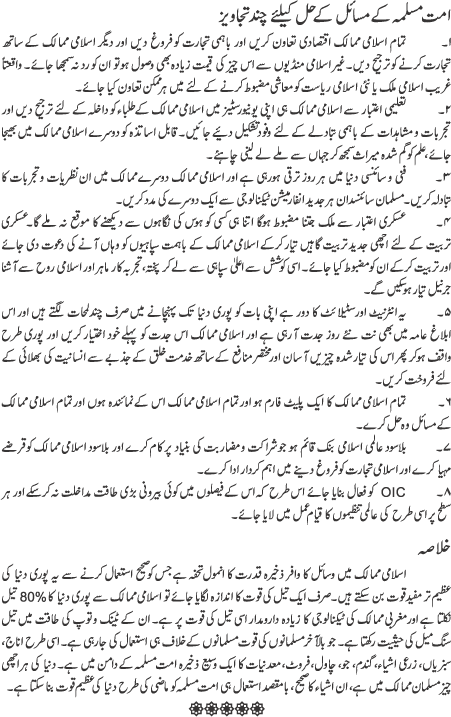 امت مسلمہ کے مسائل کے حل کیلئے چند تجاویز
۱۔ تمام اسلامی ممالک اقتصادی تعاون کریں اور باہمی تجارت کو فروغ دیں اور دیگر اسلامی ممالک کے ساتھ
تجارت کرنے کو ترجیح دیں۔ غیر اسلامی منڈیوں سے اس چیز کی قیمت زیادہ بھی وصول ہو تو ان کو رد نہ سمجھا جائے۔ واقعتاً
غریب اسلامی ملک یا نئی اسلامی ریاست کو معاشی مضبوط کرنے کے لئے میں ہر ممکن تعاون کیا جائے۔
۲۔ تعلیمی اعتبار سے اسلامی ممالک ہی اپنی یونیورسٹیز میں اسلامی ممالک کے طلباء کو داخلہ کے لئے ترجیح دیں اور
تجربات و مشاہدات کے باہمی تبادلے کے لئے وفود تشکیل دیئے جائیں۔ قابل اساتذہ کو دوسرے اسلامی ممالک میں بھیجا
جائے، علم کو گم شدہ میراث سمجھ کر جہاں سے ملے لے لینی چاہئے۔
۳۔ فنی و سائنسی دنیا میں ہر روز ترقی ہو رہی ہے اور اسلامی ممالک دوسرے ممالک میں ان نظریات و تجربات کا
تبادلہ کریں۔ مسلمان سائنسدان ہر جدید انفارمیشن ٹیکنالوجی سے ایک دوسرے کی مدد کریں۔
۴۔ عسکری اعتبار سے ملک جتنا مضبوط ہوگا اتنا ہی کسی کو ہوس کی نگاہوں سے دیکھنے کا موقع نہ ملے گا۔ عسکری
تربیت کے لئے اچھی جدید تربیت گاہیں تیار کر کے اسلامی ممالک کے باہمت سپاہیوں کو وہاں آنے کی دعوت دی جائے
اور تربیت کر کے ان کو مضبوط کیا جائے۔ اسی کوشش سے اعلیٰ سپاہی سے لے کر پختہ، تجربہ کار ماہر اور اسلامی روح سے آشنا
جرنیل تیار ہو سکیں گے۔
۵۔ یہ انٹرنیٹ اور سٹیلائٹ کا دور ہے اپنی بات کو پوری دنیا تک پہنچانے میں صرف چند لمحات لگتے ہیں اور اس
ابلاغ عامہ میں بھی نت نئے روز جدت آرہی ہے اور اسلامی ممالک اس جدت کو پہلے خود اختیار کریں اور پوری طرح
واقف ہو کر پھر اس کی تیار شدہ چیزیں آسان اور مختصر منافع کے ساتھ خدمت خلق کے جذبے سے انسانیت کی بھلائی کے
لئے فروخت کریں۔
۶۔ تمام اسلامی ممالک کا ایک پلیٹ فارم ہو اور تمام اسلامی ممالک اس کے نمائندہ ہوں اور تمام اسلامی ممالک
کے مسائل وہ حل کرے۔
۷۔ بلاسود عالمی اسلامی بنک قائم ہو جو شراکت و مضاربت کی بنیاد پر کام کرے اور بلاسود اسلامی ممالک کو قرضے
مہیا کرے اور اسلامی تجارت کو فروغ دینے میں اہم کردار ادا کرے۔
۸۔ OIC کو فعال بنایا جائے اس طرح کہ اس کے فیصلوں میں کوئی بیرونی بڑی طاقت مداخلت نہ کر سکے اور ہر
سطح پر اسی طرح کی عالمی تنظیموں کا قیام عمل میں لایا جائے۔
خلاصہ
اسلامی ممالک میں وسائل کا وافر ذخیرہ قدرت کا انمول تحفہ ہے جس کو صحیح استعمال کرنے سے یہ پوری دنیا کی
عظیم تر مفید قوت بن سکتے ہیں۔ صرف ایک تیل کی قوت کا اندازہ لگایا جائے تو اسلامی ممالک سے پوری دنیا کا 80% تیل
نکلتا ہے اور مغربی ممالک کی ٹیکنالوجی کا زیادہ دارومدار اسی تیل کی قوت پر ہے۔ ان کے ٹینک و توپ کی طاقت میں تیل
سنگ میل کی حیثیت رکھتا ہے۔ جو بالآخر مسلمانوں کی قوت مسلمانوں کے خلاف ہی استعمال کی جارہی ہے۔ اسی طرح اناج،
سبزیاں، زرعی اشیاء، گندم، جو، چاول، فروٹ، معدنیات کا ایک وسیع ذخیرہ امت مسلمہ کے دامن میں ہے۔ دنیا کی ہر اچھی
چیز مسلمان ممالک میں ہے، ان اشیاء کا صحیح، بامقصد استعمال ہی امت مسلمہ کو ماضی کی طرح دنیا کی عظیم قوت بنا سکتا ہے۔